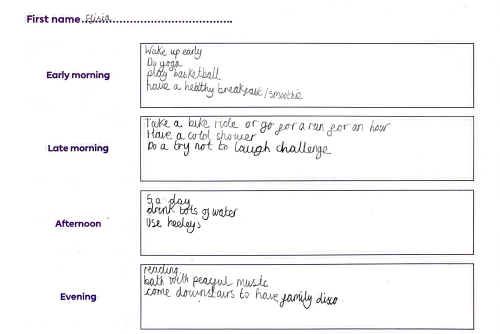 First name Elisia
Early morning
Wake up early
Do yoga
play basketball
have a healthy breakfast/smoothie
Late morning
Take a bike ride or go for a run for an hour
Have a cold shower
Do a try not to laugh challenge
Afternoon
5 a day
drink lots of water
Use heeleys
Evening
reading.
bath with peaceful music
come downstairs to have family disco.